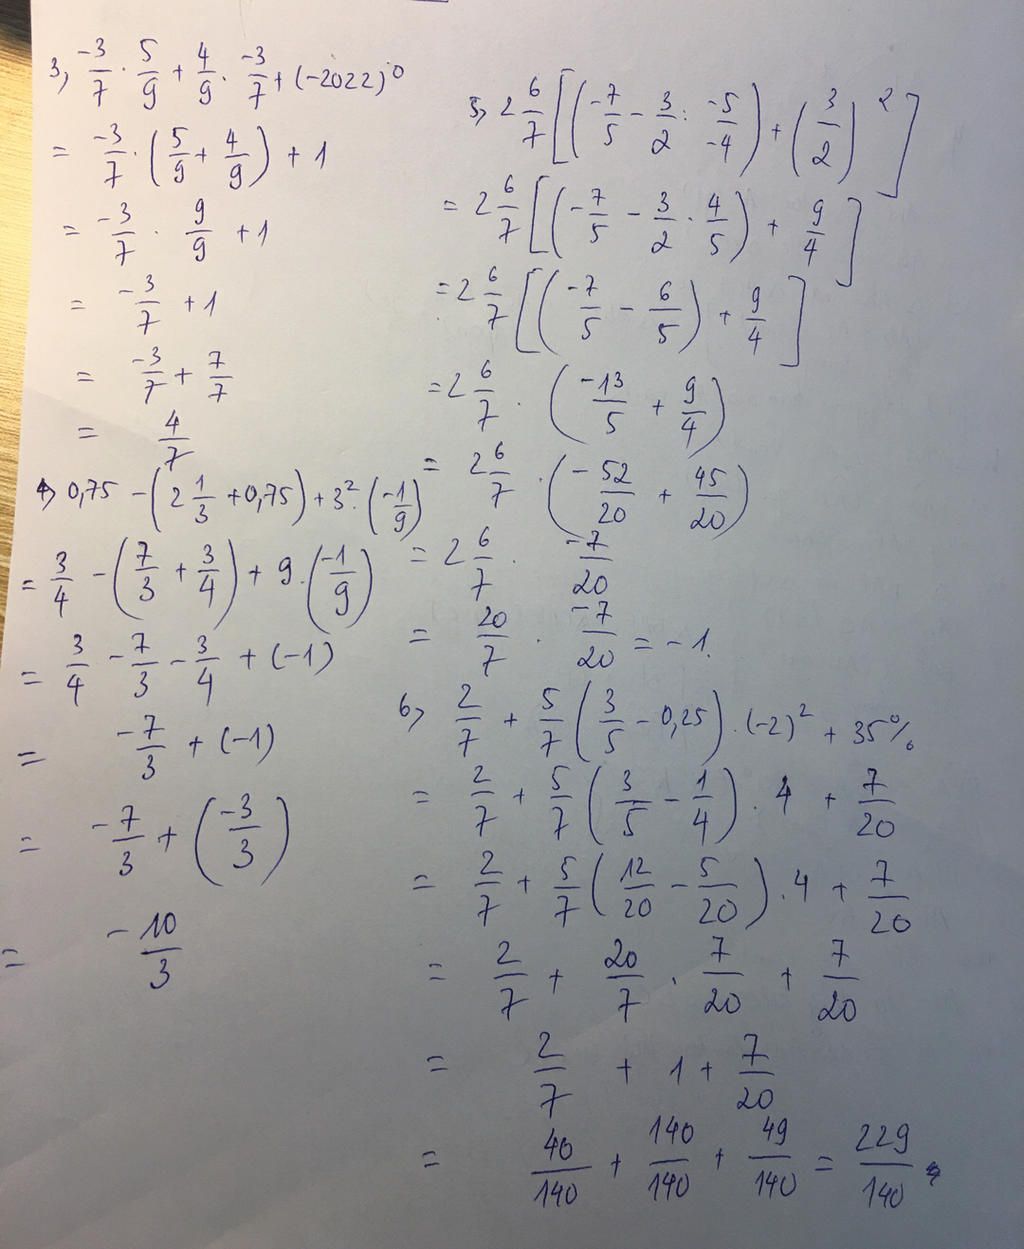 3, -3/7 . 5/9 + 4/9 . -3/7 + (-2022)^0
= -3/7 . (5/9 + 4/9) + 1
= -3/7 . 9/9 + 1
= -3/7 + 1
= -3/7 + 7/7
= 4/7
4, 0,75 - (2 1/3 + 0,75) + 3^2 . (-1/9)
= 3/4 - (7/3 + 3/4) + 9 . (-1/9)
= 3/4 - 7/3 - 3/4 + (-1)
= -7/3 + (-1)
= -7/3 + (-3/3)
= -10/3
5, 2 6/7 [(-7/5 - 3/2 : -5/-4) + (3/2)^2]
= 2 6/7 [(-7/5 - 3/2 . 4/5) + 9/4]
= 2 6/7 [(-7/5 - 6/5) + 9/4]
= 2 6/7 . (-13/5 + 9/4)
= 2 6/7 . (-52/20 + 45/20)
= 2 6/7 . -7/20
= 20/7 . -7/20 = -1.
6, 2/7 + 5/7 (3/5 - 0,25) . (-2)^2 + 35%
= 2/7 + 5/7 (3/5 - 1/4) . 4 + 7/20
= 2/7 + 5/7 (12/20 - 5/20) . 4 + 7/20
= 2/7 + 20/7 . 7/20 + 7/20
= 2/7 + 1 + 7/20
= 40/140 + 140/140 + 49/140 = 229/140.